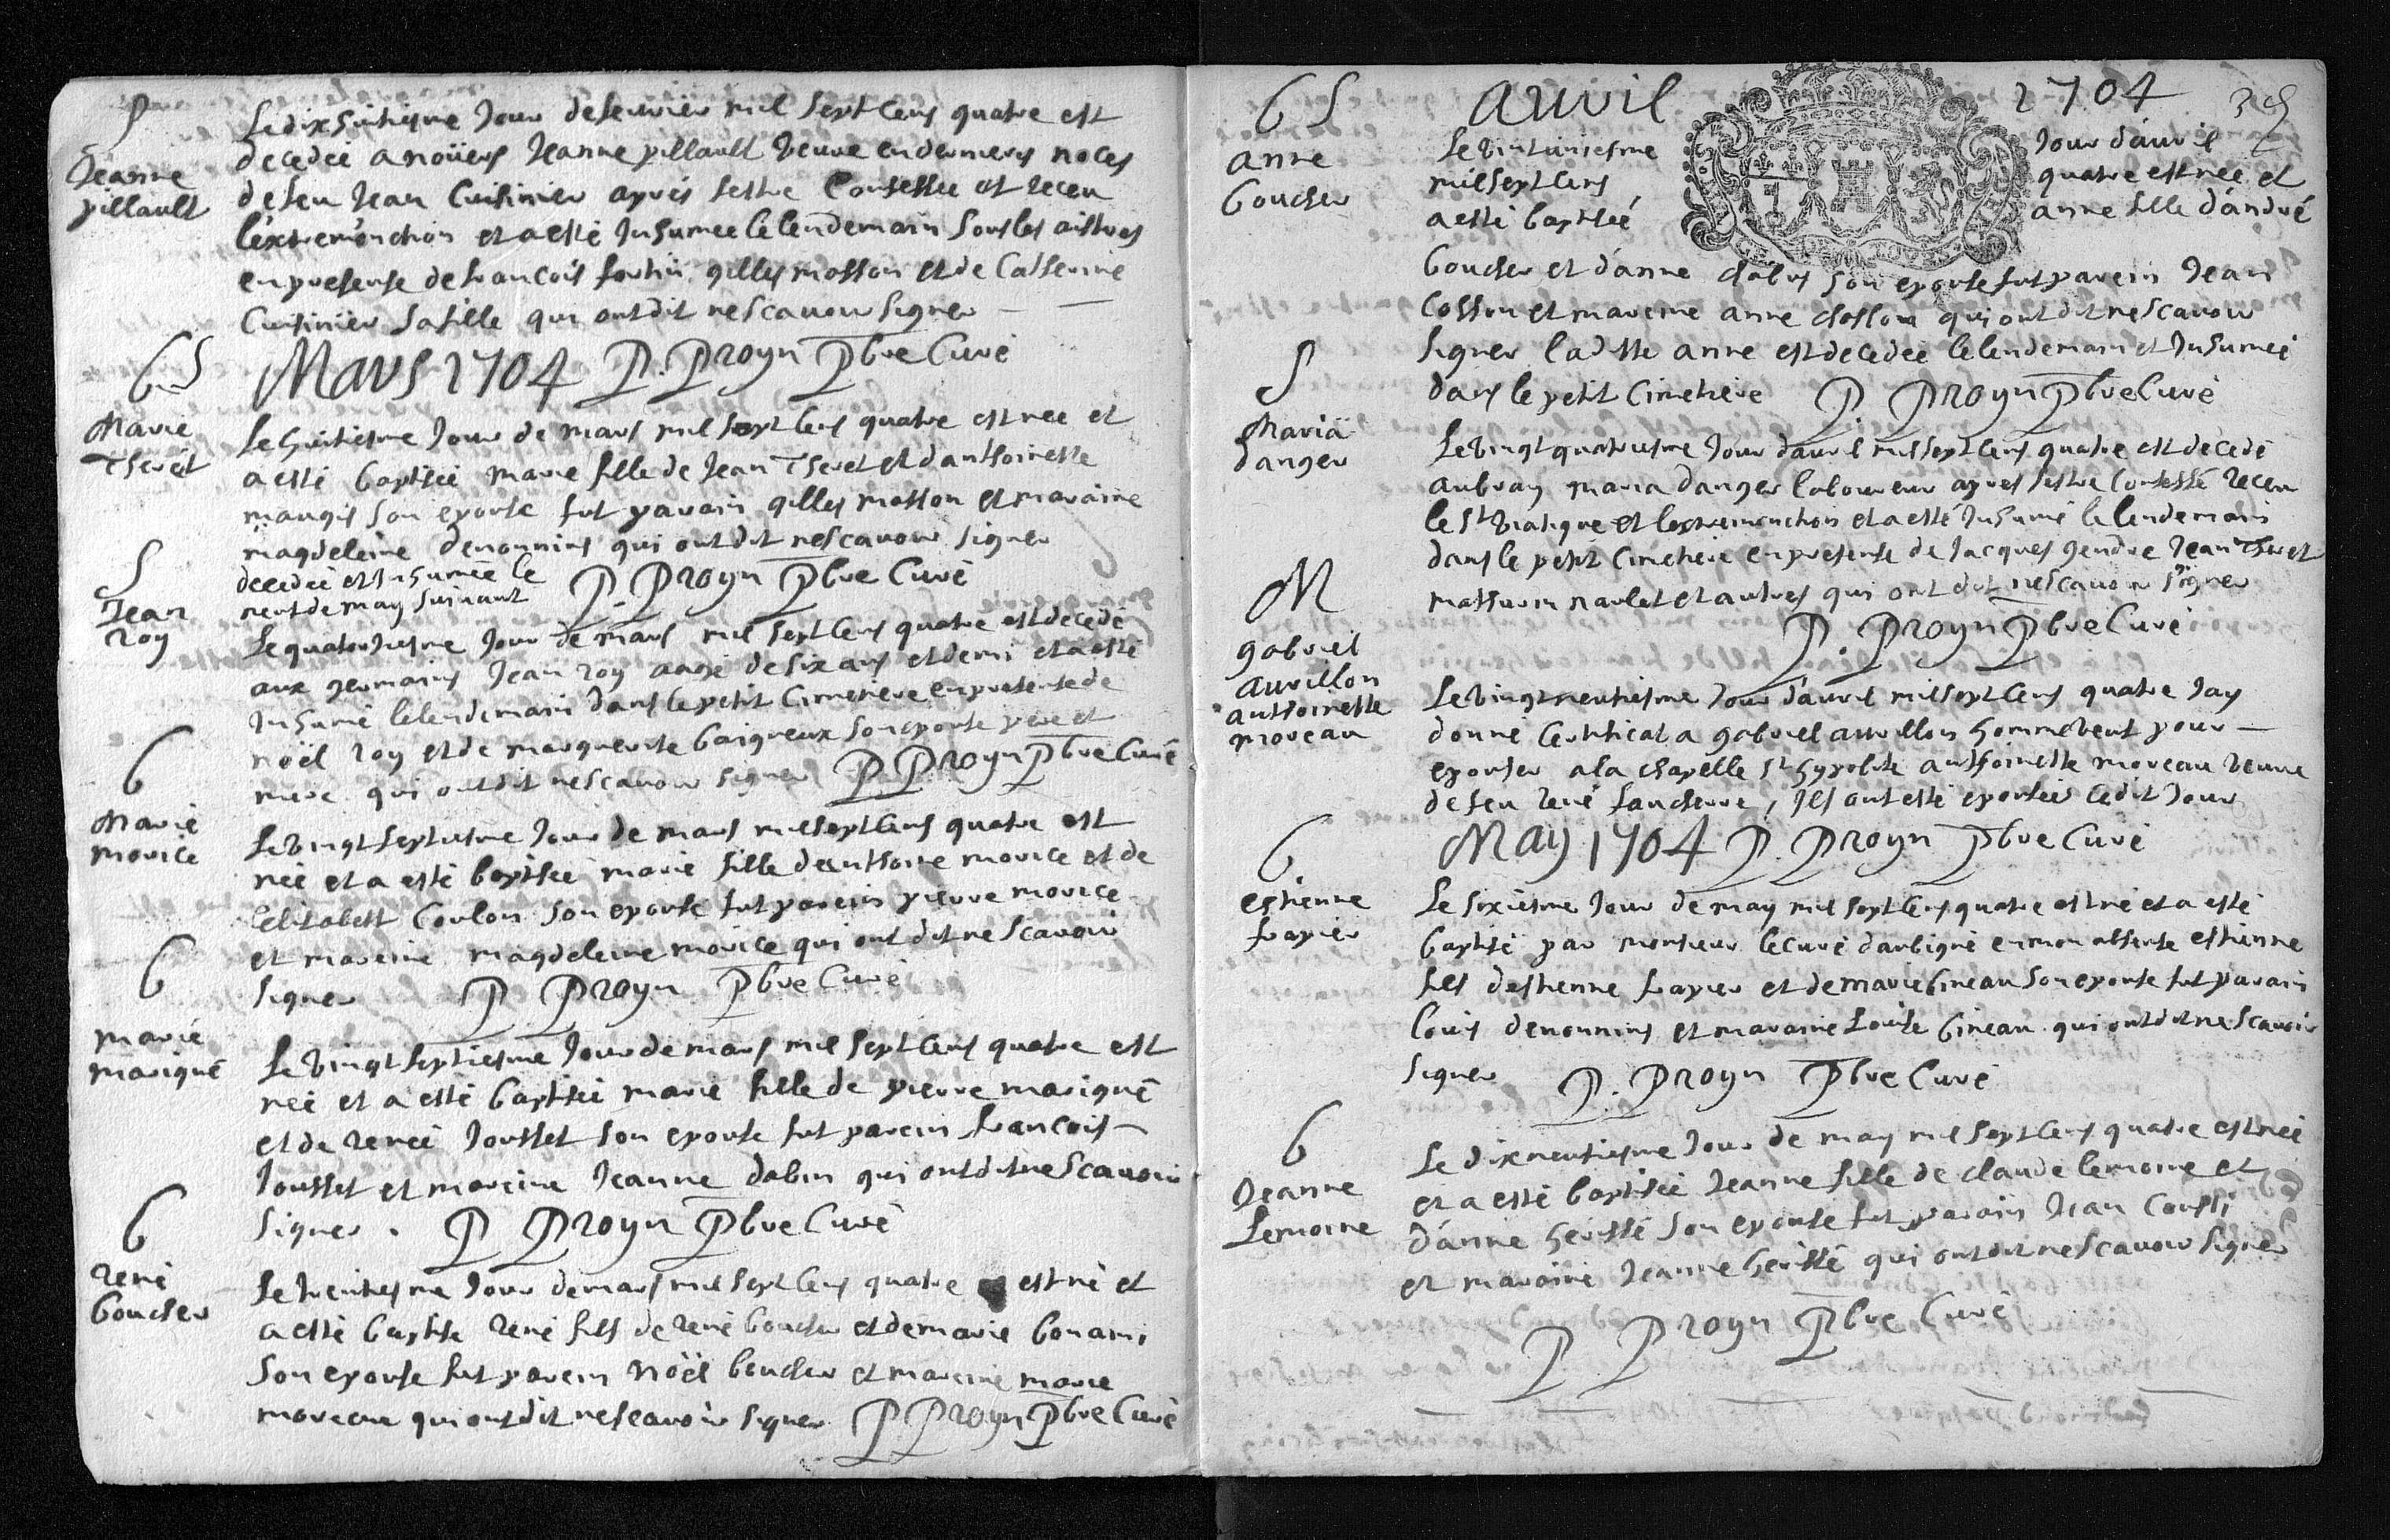 S
Jeanne
pillault
Le dix huitiesme Jour de feuvrier mil sept cens quatre est
decedée a noüers Jeanne pillault veuve en dernieres noces
de feu Jean Cuisinier aprés sestre Confessée et receu
l'extremonction et a esté Inhumee le lendemain sous les aistres
en presense de francois fortin gilles mosson et de Catherine
Cuisinier sa fille qui ont dit nescavoir signer
BS
Mars 1704 P. Proyn Pbre Curé
Marie
Theret
Le huitiesme Jour de mars mil sept cens quatre est nee et
a esté baptisée marie fille de Jean Theret et danthoinette
maugis son epouse fut parain gilles mosson et maraine
magdeleine denonnins qui ont dit nescavoir signer
decedée et Inhumée le
neuf de may suivant P. Proyn Pbre Curé
S
Jean
roy
Le quatorziesme Jour de mars mil sept cens quatre est decedé
aux germains Jean roy aagé de six ans et demi et a esté
Inhumé le lendemain dans le petit Cimetiere en presense de
noël roy et de marguerite baigneux son epouse pere et
mere qui ont dit nescavoir signer P. Proyn Pbre Curé
B
Marie
morice
Le vingt septiesme Jour de mars mil sept cens quatre est
née et a esté baptisée marie fille de anthoine morice et de
elisabett Coulon son epouse fut parein pierre morice
et mareine magdeleine morice qui ont dit ne scavoir
signer P Proyn Pbre Curé
B
marie
marigné
Le vingt septiesme Jour de mars mil sept cens quatre est
née et a esté baptisée marie fille de pierre marigné
et de renée Jousset son epouse fut parein francois
Jousset et mareine Jeanne dabin qui ont dit ne scavoir
signer . P Proyn Pbre Curé
B
rené
boucher
Le trentiesme Jour de mars mil sept cens quatre est né et
a esté baptise rené fils de rené boucher et de marie bonami
son epouse fut parein noël boucher et mareine marie
moreau qui ont dit nescavoir signer P Proyn Pbre Curé
BS
Auvril 1704
anne
boucher
Le vintuniesme Jour d'auvril
mil sept cens quatre est née et
a esté baptisée anne fille d'andré
boucher et d'anne chabus son epouse fut parein Jean
Cosson et mareine anne chosson qui ont dit nescavoir
signer ladite anne est decedée le lendemain et Inhumée
dans le petit Cimetiere P. Proyn Pbre Curé
S
Maria
danger
Le vingt quatriesme Jour dauvril mil sept cens quatre est decedé
aubray maria danger laboureur apres sestre Confessé receu
le St viatique et l'extremonction et a esté Inhumé le lendemain
dans le petit Cimetiere en presense de Jacques gendre Jean Theret
mathurin naulet et autres qui ont dit nescavoir signer
P. Proyn Pbre Curé
M
gabriel
auvillon
anthoinette
moreau
Le vingt neufiesme Jour d'auvril mil sept cens quatre Jay
donné Certificat a gabriel auvillon homme veuf pour
epouser a la chapelle St hypolite anthoinette moreau veuve
de feu rené fauchereu, Ils ont esté epousée cedit Jour
May 1704 P. Proyn Pbre Curé
B
estienne
frapier
Le sixiesme Jour de may mil sept cens quatre est né et a esté
baptisé par monsieur le curé daubigné en mon absense estienne
fils destienne frapier et de marie bineau son epouse fut parain
louis denonnins et maraine Louise bineau qui ont dit ne scavoir
signer P. Proyn Pbre Curé
B
Jeanne
Lemoine
Le dixneufiesme Jour de may mil sept cens quatre est née
et a esté baptisée Jeanne fille de claude lemoine et
d'anne herissé son epouse fut parain Jean Compli
et maraine Jeanne herissé qui ont dit nescavoir signer
P Proyn Pbre Curé